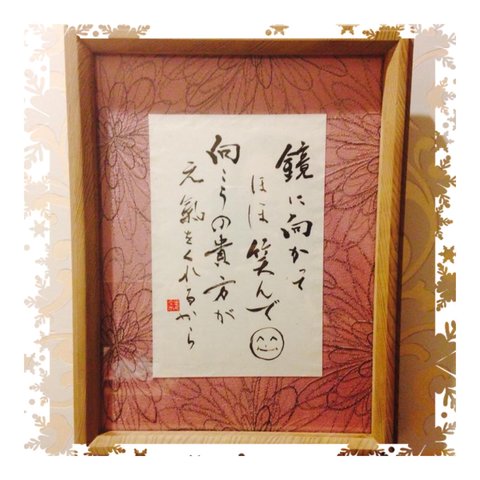 鏡に向かって
ほほ笑んで
向こうの貴方が
元氣をくれるから